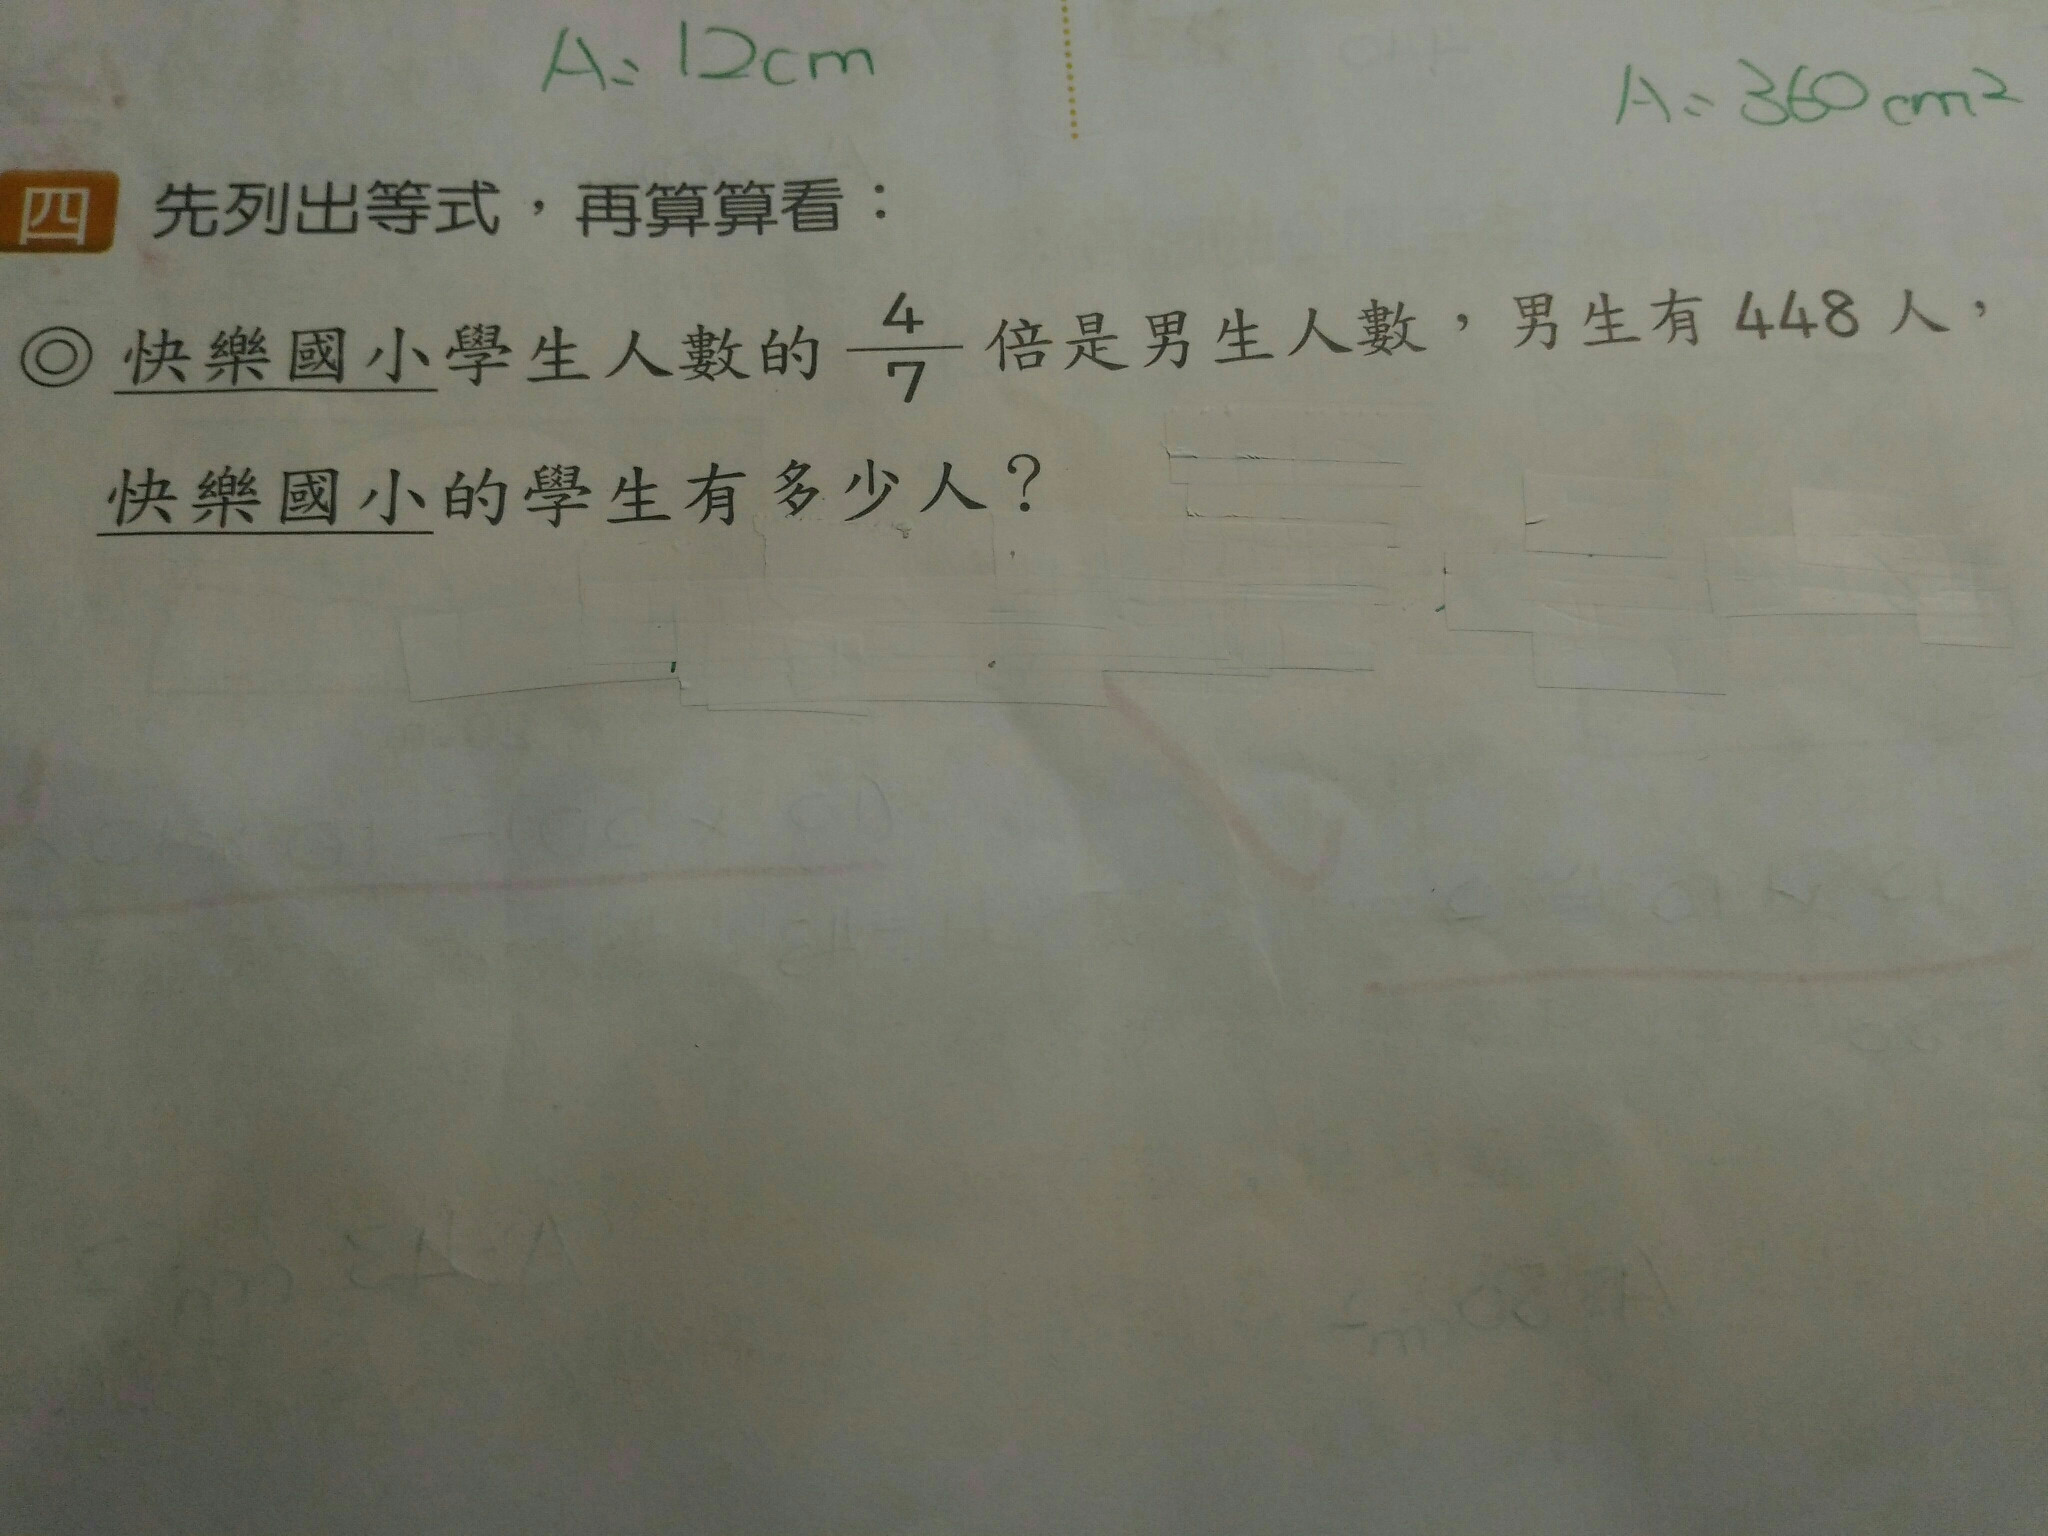 A= 12cm
A= 360cm²
四 先列出等式，再算算看：
◎快樂國小學生人數的 4/7 倍是男生人數，男生有448人，
快樂國小的學生有多少人？